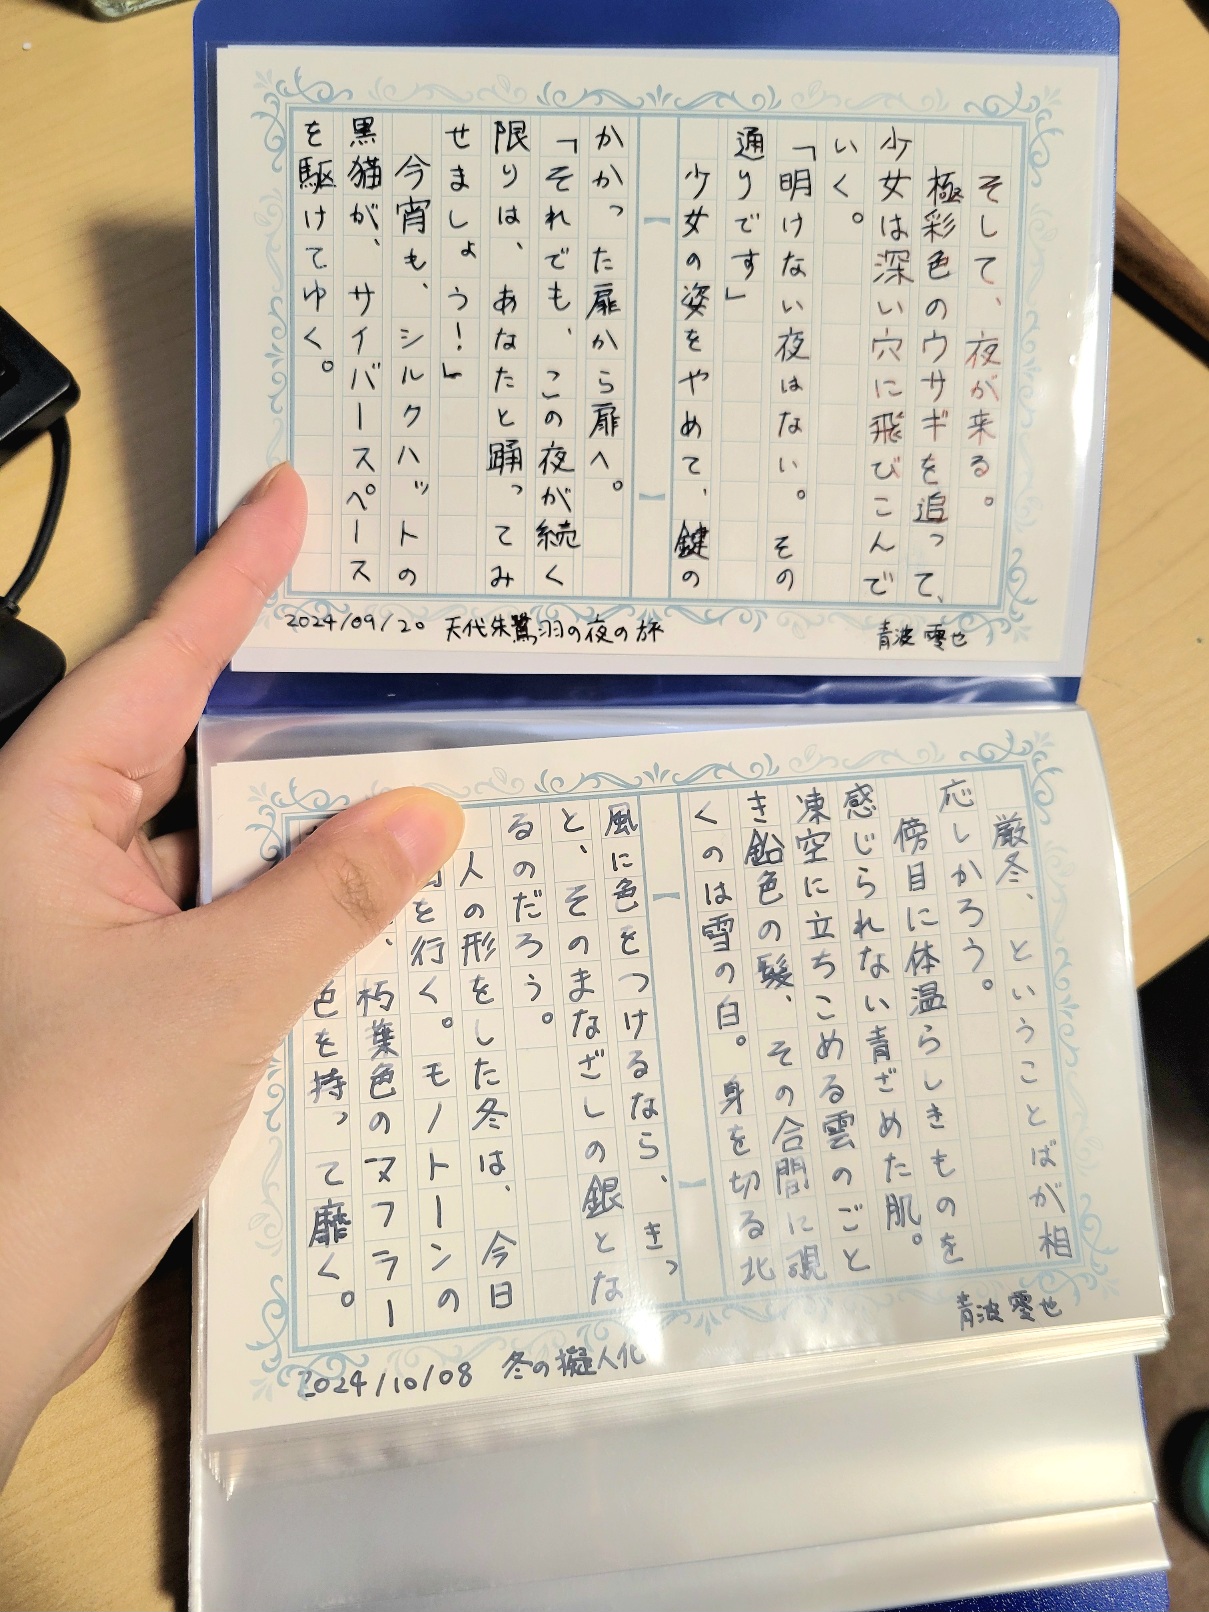 そして、夜が来る。
極彩色のウサギを追って、
少女は深い穴に飛びこんで
いく。
「明けない夜はない。その
通りです」
少女の姿をやめて、鍵の
かかった扉から扉へ。
「それでも、この夜が続く
限りは、あなたと踊ってみ
せましょう！」
今宵も、シルクハットの
黒猫が、サイバースペース
を駆けてゆく。
2024/09/20 天代朱鷺羽の夜の旅
青波 零也
厳冬、ということばが相
応しかろう。
傍目に体温らしきものを
感じられない青ざめた肌。
凍空に立ちこめる雲のごと
き鉛色の髪、その合間に覗
くのは雪の白。身を切る北
風に色をつけるなら、きっ
と、そのまなざしの銀とな
るのだろう。
人の形をした冬は、今日
を行く。モノトーンの
、朽葉色のマフラー
色を持って靡く。
2024/10/08 冬の擬人化
青波 零也